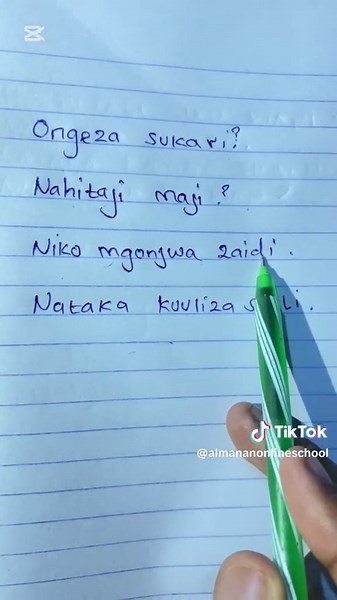 Ongeza sukari?
Nahitaji maji.?
Niko mgonjwa zaidi.
Nataka kuuliza
TikTok
@almananonlineschool